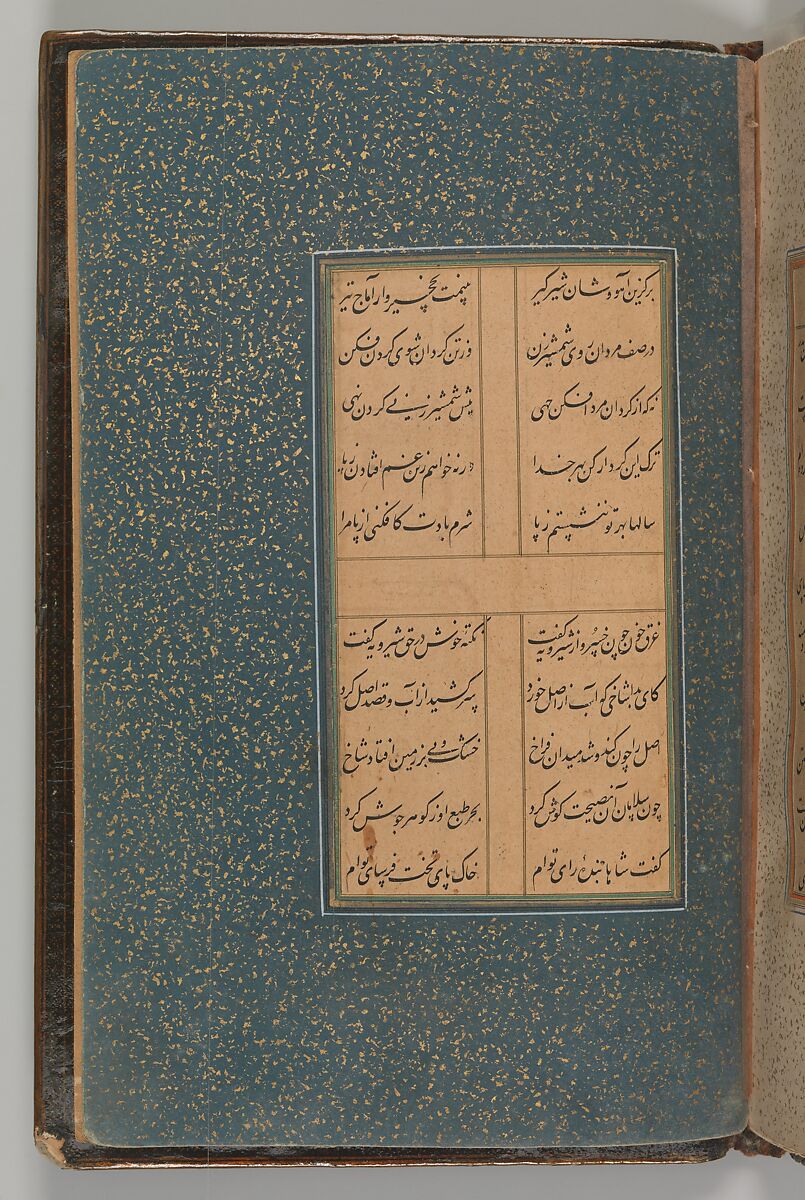 برگزین آهو وشان شیر گیر نخچیر وار آماج تیر
در صف مردان روی شمشیر زن وز تن گردان شوی گردن فکن
نه که از گردان مرد افکن جهی پیش شمشیر زنی گردن نهی
ترک این کردار کن بهر خدا ورنه خواهم زین غم افتادن ز پا
سالها بهر تو ننشستم ز پا شرم بادت کافکنی از پا مرا
غرق خون چون خسرو از شیرویه خفت نکته خوش در حق شیرویه گفت
کای بدا شاخی که آب از اصل خورد سر کشید از آب و قصد اصل کرد
اصل را چون کند و شد میدان فراخ خشک و بی بر بر زمین افتاد شاخ
چون سلامان آن نصیحت گوش کرد بحر طبع او ز گوهر جوش کرد
گفت شاها بنده رای توام خاک پای تخت فرسای توام